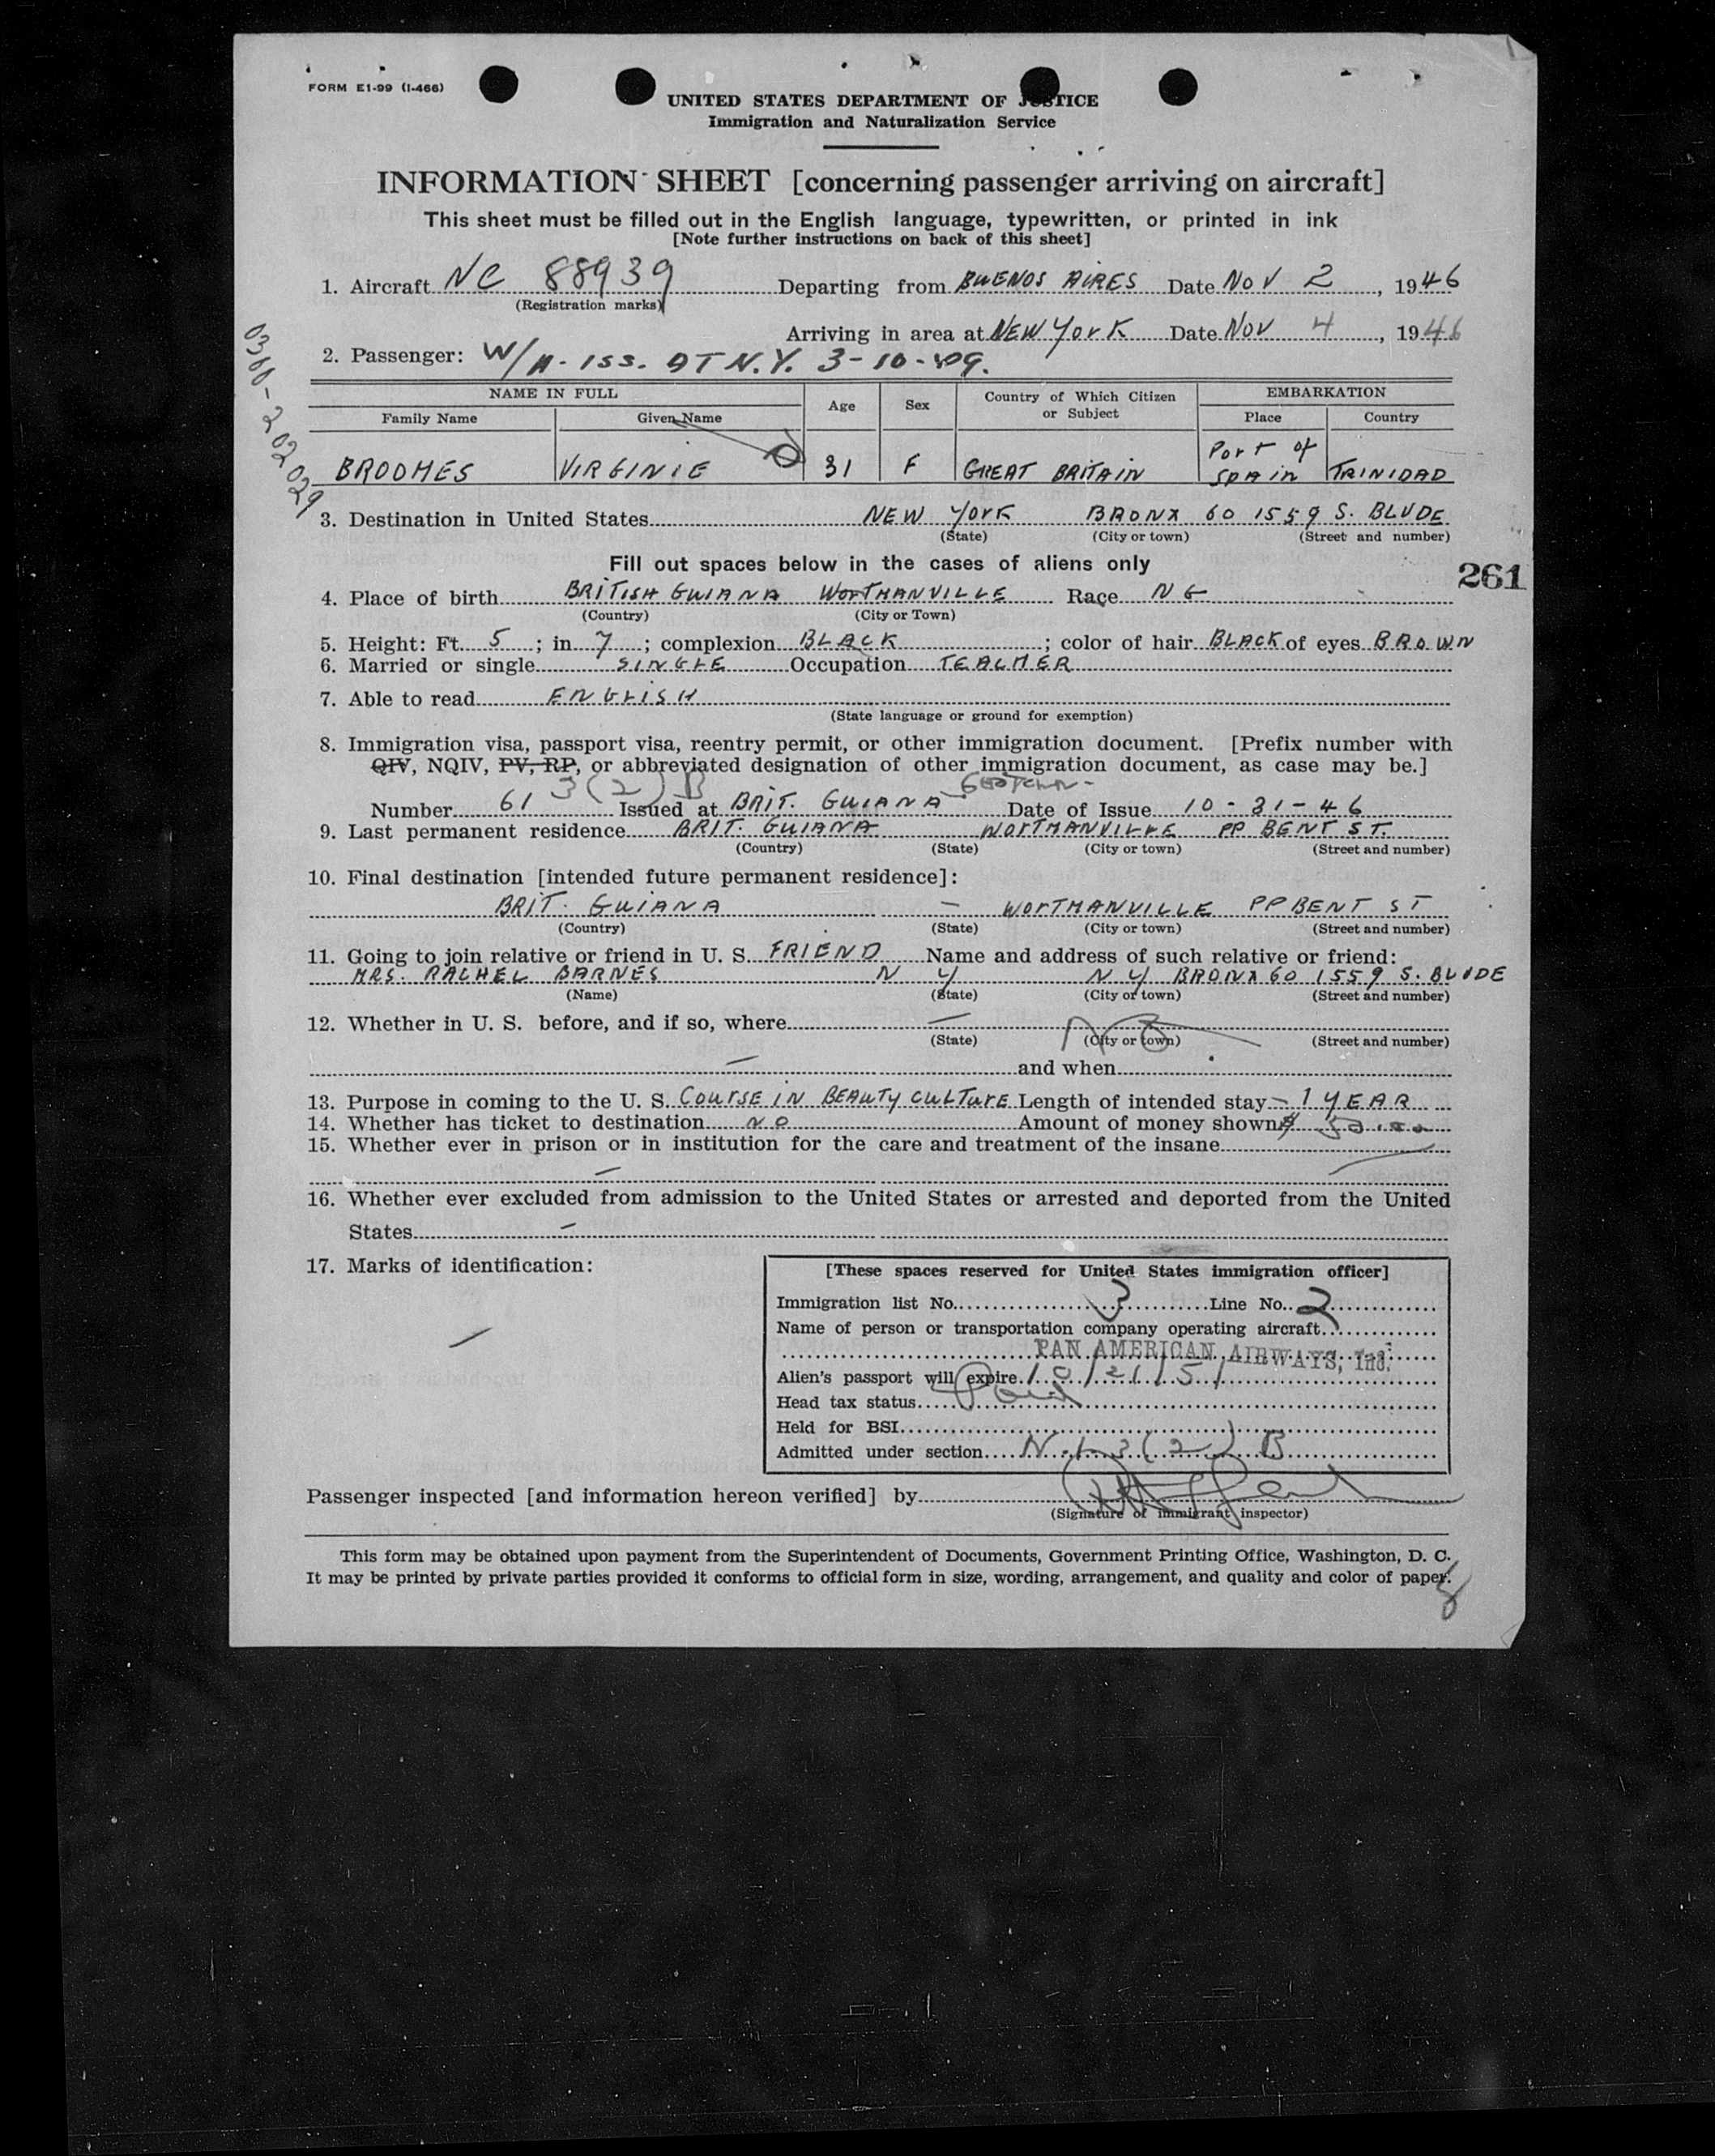 FORM E1-99 (I-466)
UNITED STATES DEPARTMENT OF JUSTICE
Immigration and Naturalization Service
INFORMATION SHEET [concerning passenger arriving on aircraft]
This sheet must be filled out in the English language, typewritten, or printed in ink
[Note further instructions on back of this sheet]
1. Aircraft NC 88939 Departing from BUENOS AIRES Date NOV 2, 1946
(Registration marks)
Arriving in area at NEW YORK Date NOV 4, 1946
2. Passenger: W/A-ISS. AT N.Y. 3-10-49.
0300-202029
NAME IN FULL Age Sex Country of Which Citizen or Subject EMBARKATION
Family Name Given Name Place Country
BROOMES VIRGINIE 31 F GREAT BRITAIN Port of SPAIN TRINIDAD
3. Destination in United States NEW YORK BRONX 60 1559 S. BLVDE
(State) (City or town) (Street and number)
Fill out spaces below in the cases of aliens only
261
4. Place of birth BRITISH GUIANA WORTMANVILLE Race NG
(Country) (City or Town)
5. Height: Ft. 5; in 7; complexion BLACK; color of hair BLACK of eyes BROWN
6. Married or single SINGLE Occupation TEACHER
7. Able to read ENGLISH
(State language or ground for exemption)
8. Immigration visa, passport visa, reentry permit, or other immigration document. [Prefix number with
QIV, NQIV, PV, RP, or abbreviated designation of other immigration document, as case may be.]
3(2)B
Number 61 Issued at BRIT. GUIANA Date of Issue 10-31-46
9. Last permanent residence BRIT. GUIANA WORTMANVILLE PP BENT ST.
(Country) (State) (City or town) (Street and number)
10. Final destination [intended future permanent residence]:
BRIT. GUIANA — WORTMANVILLE PP BENT ST
(Country) (State) (City or town) (Street and number)
11. Going to join relative or friend in U. S. FRIEND Name and address of such relative or friend:
MRS. RACHEL BARNES N Y N Y BRONX 60 1559 S. BLVDE
(Name) (State) (City or town) (Street and number)
12. Whether in U. S. before, and if so, where — NO
(State) (City or town) (Street and number)
— and when
13. Purpose in coming to the U. S. COURSE IN BEAUTY CULTURE Length of intended stay - 1 YEAR
14. Whether has ticket to destination NO Amount of money shown $ 50.00
15. Whether ever in prison or in institution for the care and treatment of the insane —
—
16. Whether ever excluded from admission to the United States or arrested and deported from the United
States —
17. Marks of identification:
—
[These spaces reserved for United States immigration officer]
Immigration list No. 3 Line No. 2
Name of person or transportation company operating aircraft
PAN AMERICAN AIRWAYS, Inc.
Alien's passport will expire 10/21/51
Head tax status Paid
Held for BSI
Admitted under section N-1-3(2)B
Passenger inspected [and information hereon verified] by
(Signature of immigrant inspector)
This form may be obtained upon payment from the Superintendent of Documents, Government Printing Office, Washington, D. C.
It may be printed by private parties provided it conforms to official form in size, wording, arrangement, and quality and color of paper.